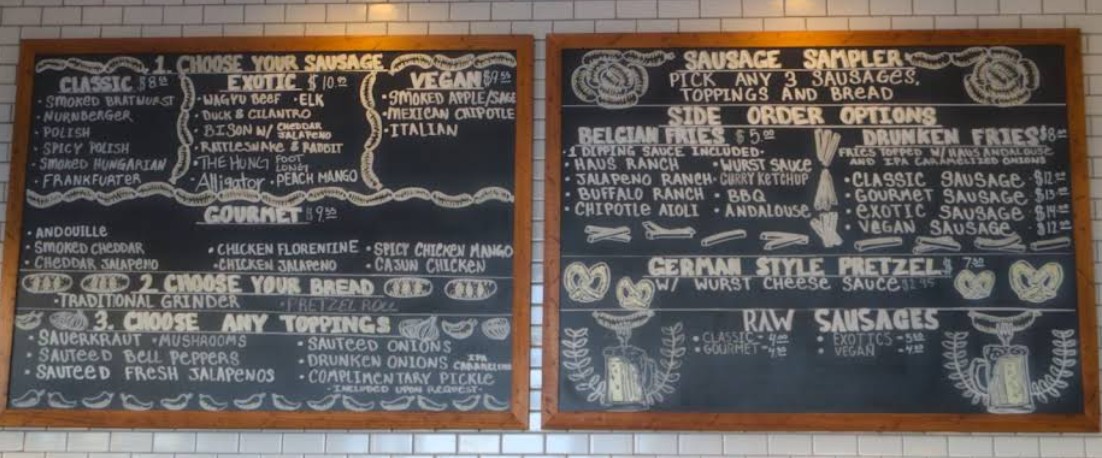 1. CHOOSE YOUR SAUSAGE
CLASSIC
• SMOKED BRATWURST
• NURNBERGER
• POLISH
• SPICY POLISH
• SMOKED HUNGARIAN
• FRANKFURTER
EXOTIC $10
• WAGYU BEEF • ELK
• DUCK & CILANTRO
• BISON W/ CHEDDAR JALAPENO
• RATTLESNAKE & RABBIT
• THE HUNG FOOT LONG
• Alligator • PEACH MANGO
VEGAN $9
• SMOKED APPLE/SAGE
• MEXICAN CHIPOTLE
• ITALIAN
GOURMET $9
• ANDOUILLE
• SMOKED CHEDDAR
• CHEDDAR JALAPENO
• CHICKEN FLORENTINE
• CHICKEN JALAPENO
• SPICY CHICKEN MANGO
• CAJUN CHICKEN
2 CHOOSE YOUR BREAD
• TRADITIONAL GRINDER • PRETZEL ROLL
3. CHOOSE ANY TOPPINGS
• SAUERKRAUT • MUSHROOMS
• SAUTEED BELL PEPPERS
• SAUTEED FRESH JALAPENOS
• SAUTEED ONIONS
• DRUNKEN ONIONS IPA
• COMPLIMENTARY PICKLE
- INCLUDED UPON REQUEST -
SAUSAGE SAMPLER
PICK ANY 3 SAUSAGES.
TOPPINGS AND BREAD
SIDE ORDER OPTIONS
BELGIAN FRIES $5.00
• 1 DIPPING SAUCE INCLUDED •
• HAUS RANCH • WURST SAUCE
• JALAPENO RANCH • CURRY KETCHUP
• BUFFALO RANCH • BBQ
• CHIPOTLE AIOLI • ANDALOUSE
DRUNKEN FRIES $8
FRIES TOPPED W/ HAUS ANDALOUSE
AND IPA CARAMELIZED ONIONS
• CLASSIC SAUSAGE $12
• GOURMET SAUSAGE $13
• EXOTIC SAUSAGE $14
• VEGAN SAUSAGE
GERMAN STYLE PRETZEL $7
W/ WURST CHEESE SAUCE $2.95
RAW SAUSAGES
• CLASSIC
• GOURMET
• EXOTICS
• VEGAN